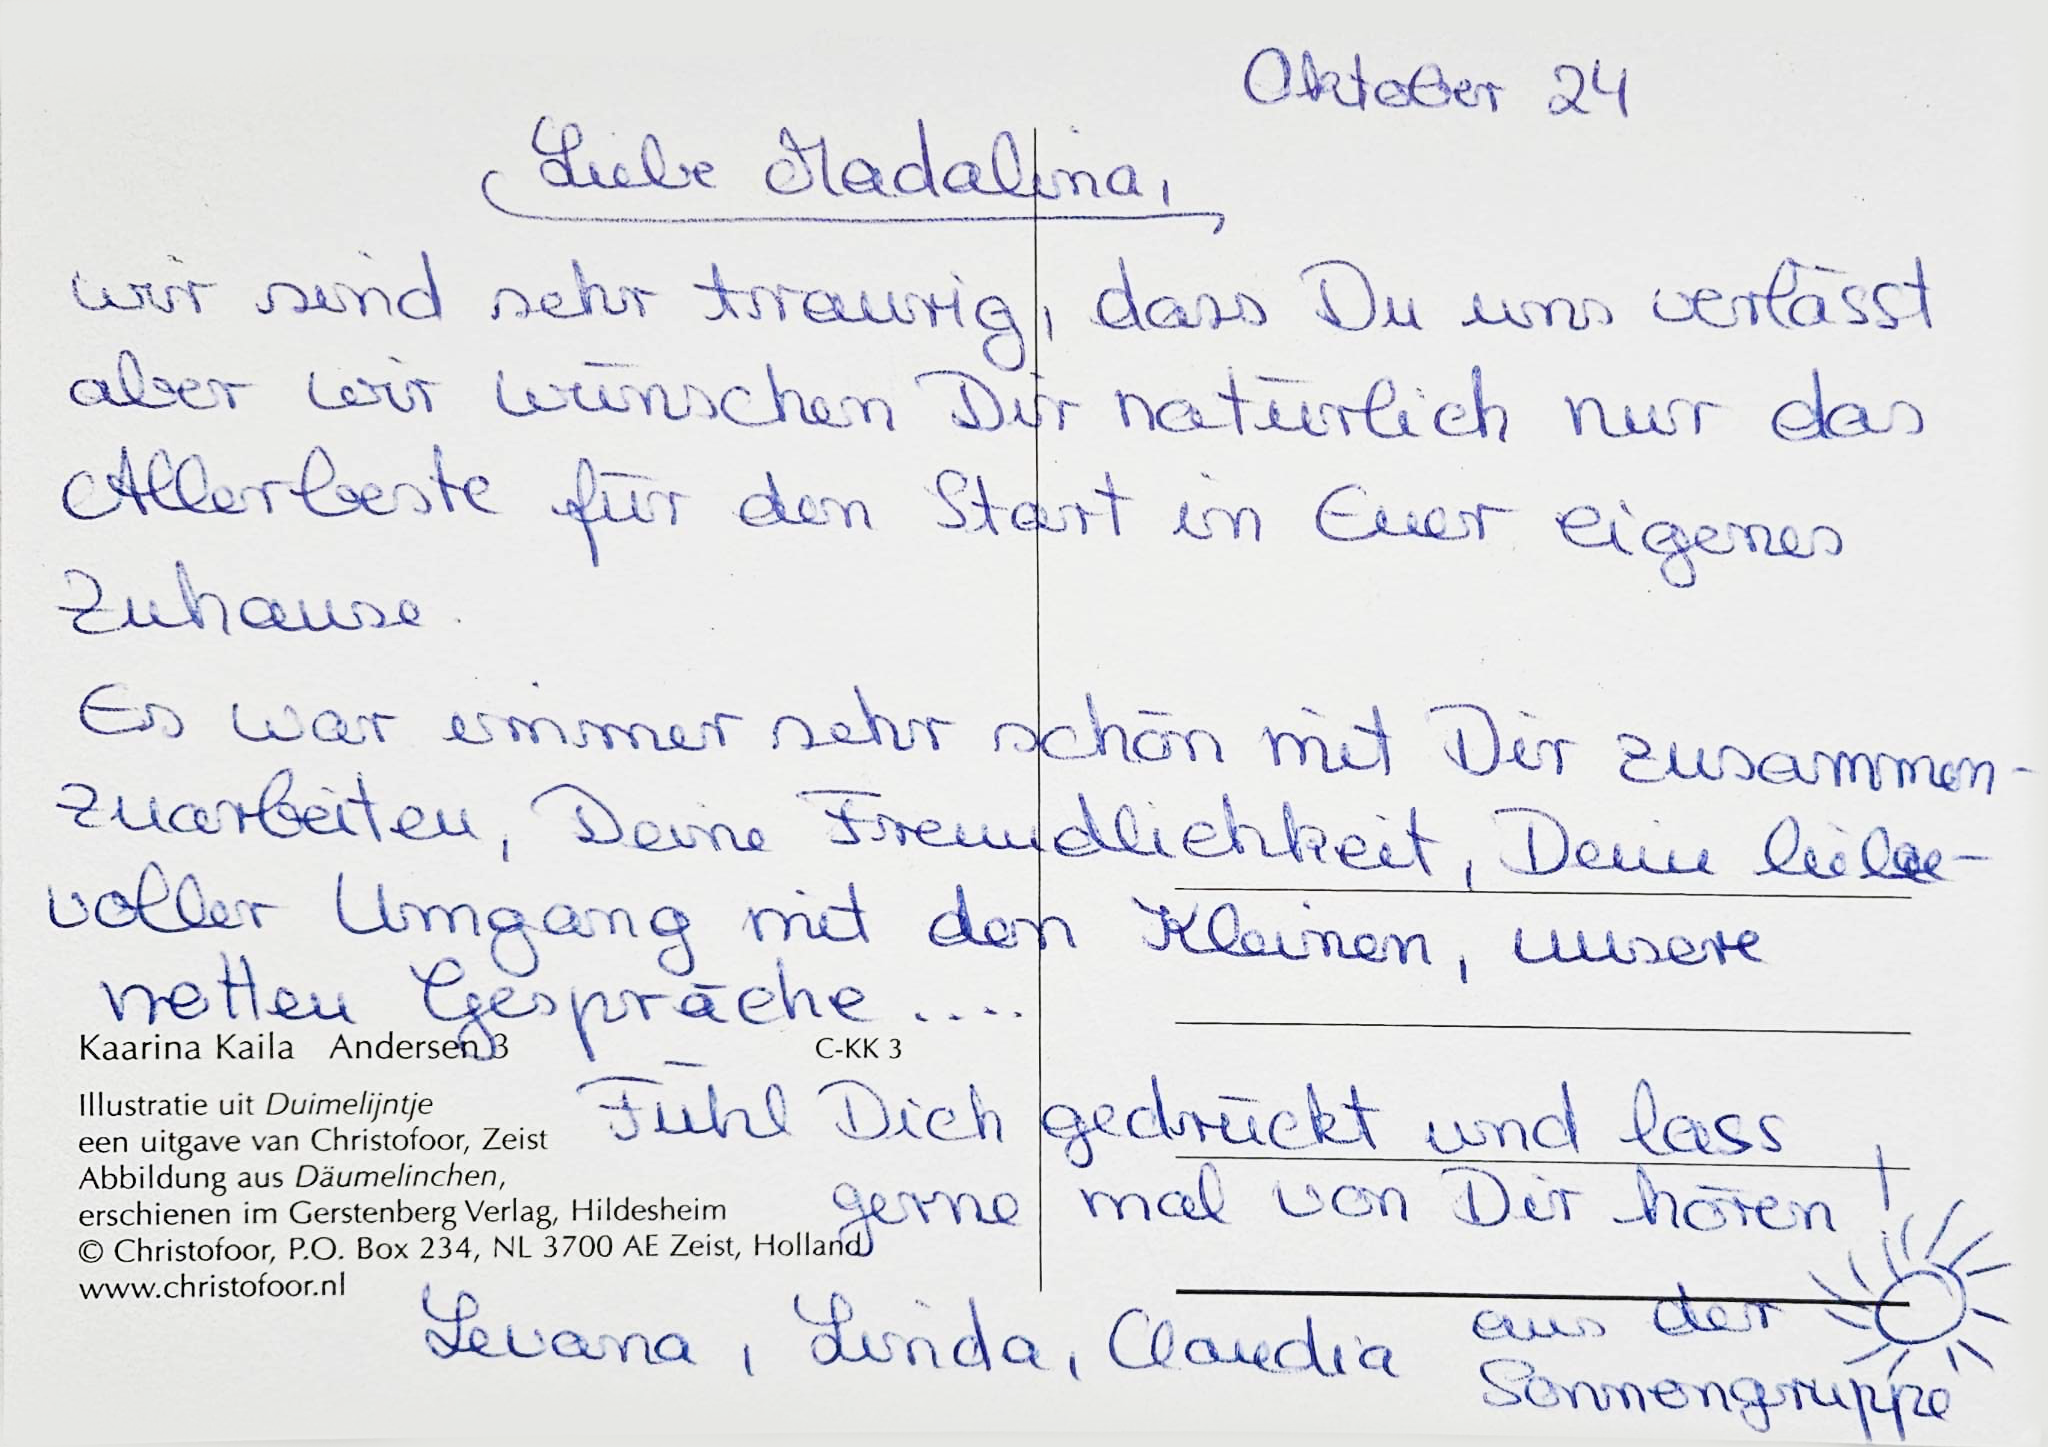 Oktober 24
Liebe Madalina,
wir sind sehr traurig, dass Du uns verlässt
aber wir wünschen Dir natürlich nur das
Allerbeste für den Start in Euer eigenes
Zuhause.
Es war immer sehr schön mit Dir zusammen-
zuarbeiten, Deine Freundlichkeit, Dein liebe-
voller Umgang mit den Kleinen, unsere
netten Gespräche ....
Kaarina Kaila Andersen 3 C-KK 3
Illustratie uit Duimelijntje
een uitgave van Christofoor, Zeist
Abbildung aus Däumelinchen,
erschienen im Gerstenberg Verlag, Hildesheim
© Christofoor, P.O. Box 234, NL 3700 AE Zeist, Holland
www.christofoor.nl
Fühl Dich gedrückt und lass
gerne mal von Dir hören!
Levana, Linda, Claudia aus der
Sonnengruppe